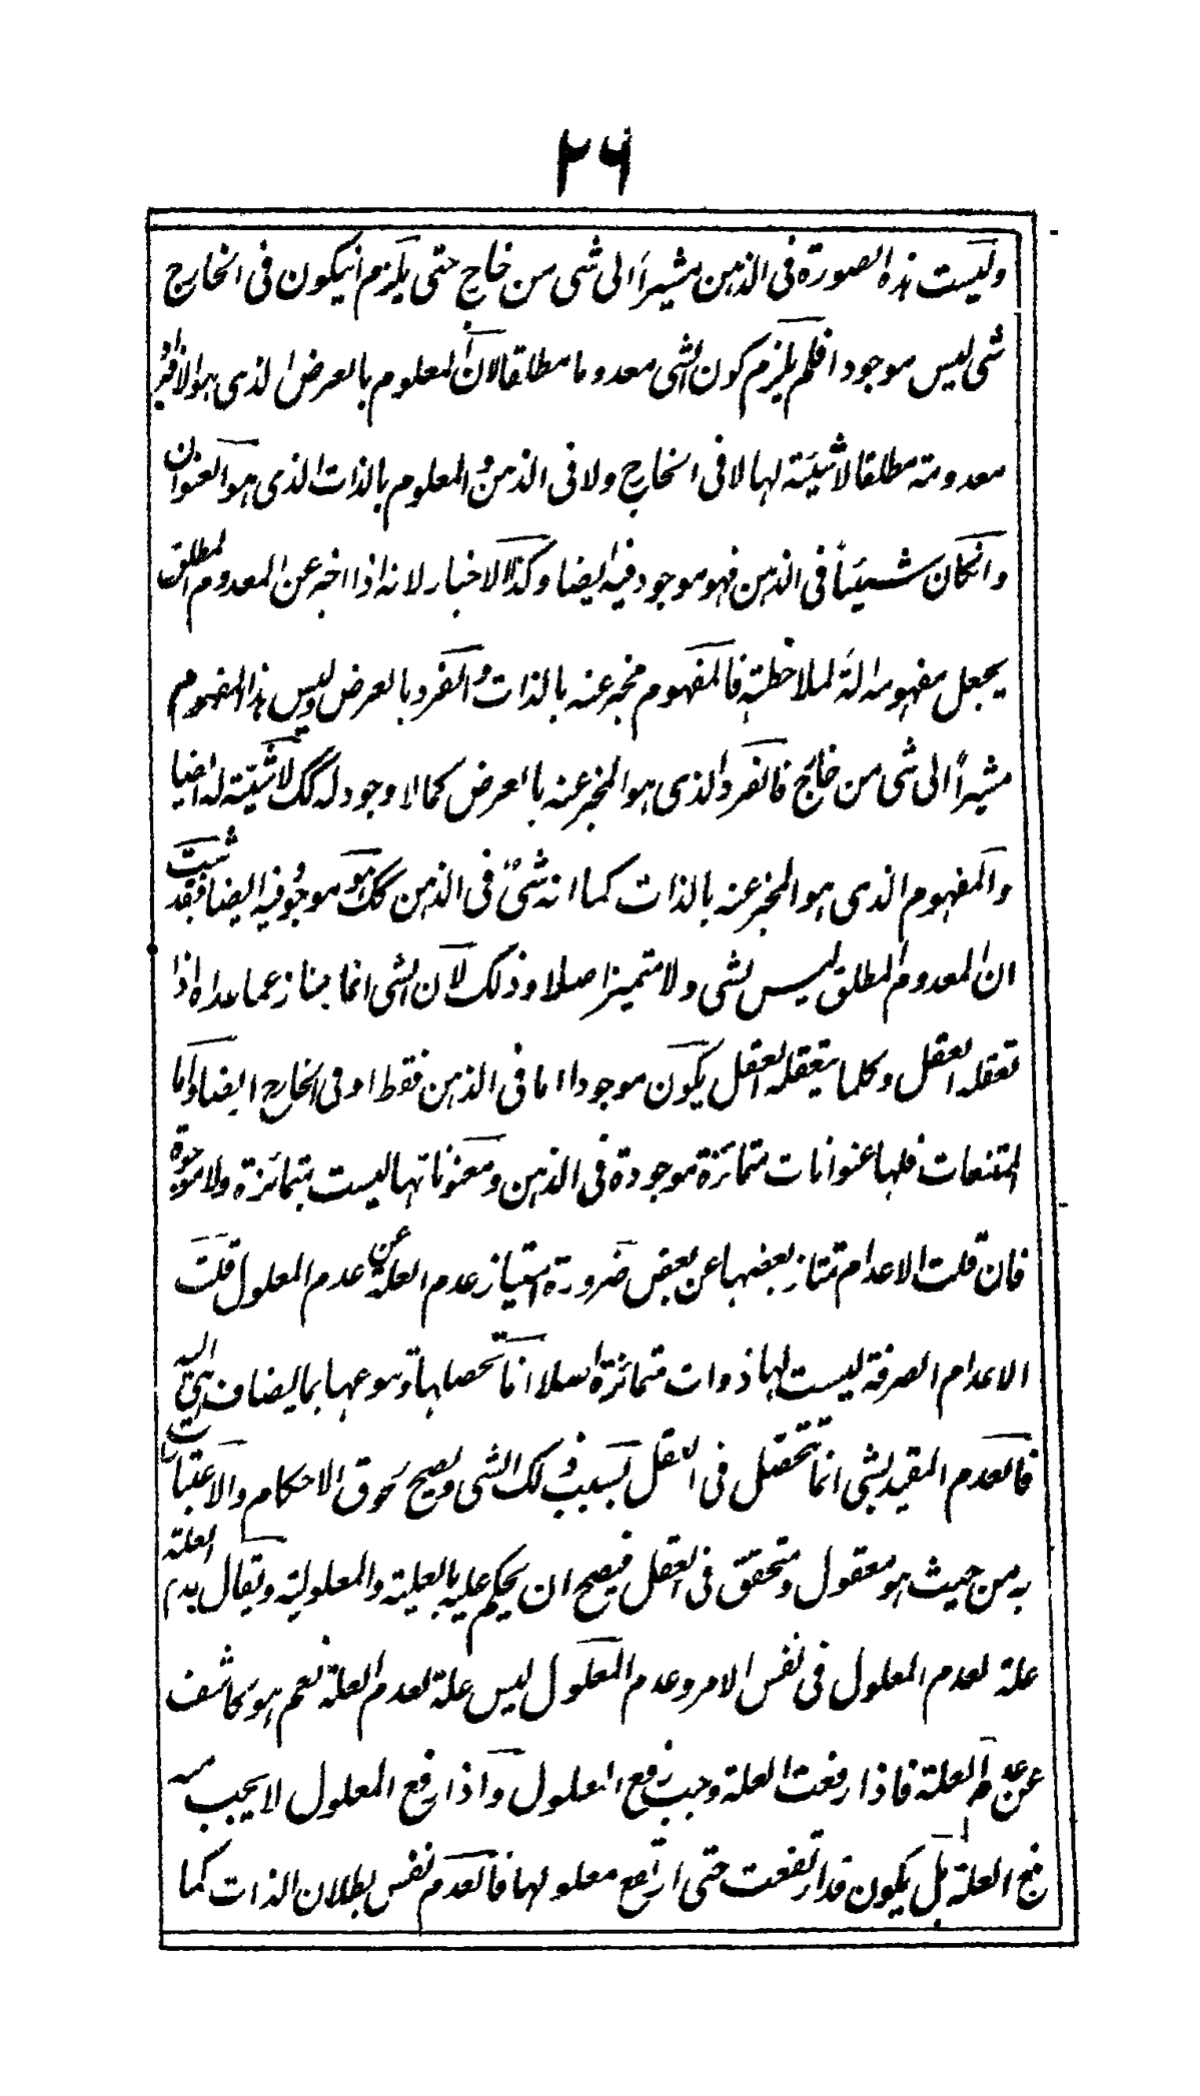 ٢٦
وليست هذه الصورة فى الذهن مشيرا الى شى من خارج حتى يلزم انيكون فى الخارج
شى ليس موجودا فلم يلزم كون الشى معدوما مطلقا لان المعلوم بالعرض الذى هو الافراد
معدومة مطلقا لا شيئية لها لا فى الخارج ولا فى الذهن و المعلوم بالذات الذى هو العنوان
وانكان شيئاً فى الذهن فهو موجود فيه ايضا وكذا الاخبار لانه اذا اخبر عن المعدوم المطلق
يجعل مفهومه الة لملاحظته فالمفهوم مخبر عنه بالذات و الفرد بالعرض وليس هذا المفهوم
مشيراً الى شى من خارج فالفرد الذى هو المخبر عنه بالعرض كما لا وجود له كك لا شيئية له ايضا
والمفهوم الذى هو المخبر عنه بالذات كما انه شىٌ فى الذهن كك هو موجود فيه ايضا فقد ثبت
ان المعدوم المطلق ليس بشى ولا متميز اصلا وذلك لان الشى انما يمتاز عما عداه اذا
تعقله العقل وكلما يتعقله العقل يكون موجودا اما فى الذهن فقط او فى الخارج ايضا واما
الممتنعات فلها عنوانات متمائزة موجودة فى الذهن ومعنوناتها ليست بتمائزة ولا موجودة
فان قلت الاعدام تمتاز بعضها عن بعض ضرورة امتياز عدم العلة عن عدم المعلول قلت
الاعدام الصرفة ليست لها ذوات متمائزة اصلا انما تحصلها وتنوعها بما يضاف اليه
فالعدم المقيد بشى انما يتحصل فى العقل بسبب ذلك الشى ويصح لحوق الاحكام والاعتبارات
به من حيث هو معقول ومتحقق فى العقل فيصح ان يحكم عليه بالعلية والمعلولية ويقال عدم العلة
علة لعدم المعلول فى نفس الامر وعدم المعلول ليس علة لعدم العلة نعم هو كاشف
عن عدم العلة فاذا رفعت العلة وجب رفع المعلول واذا رفع المعلول لا يجب منه
رفع العلة بل يكون قد ارتفعت حتى ارتفع معلولها فالعدم نفس بطلان الذات كما